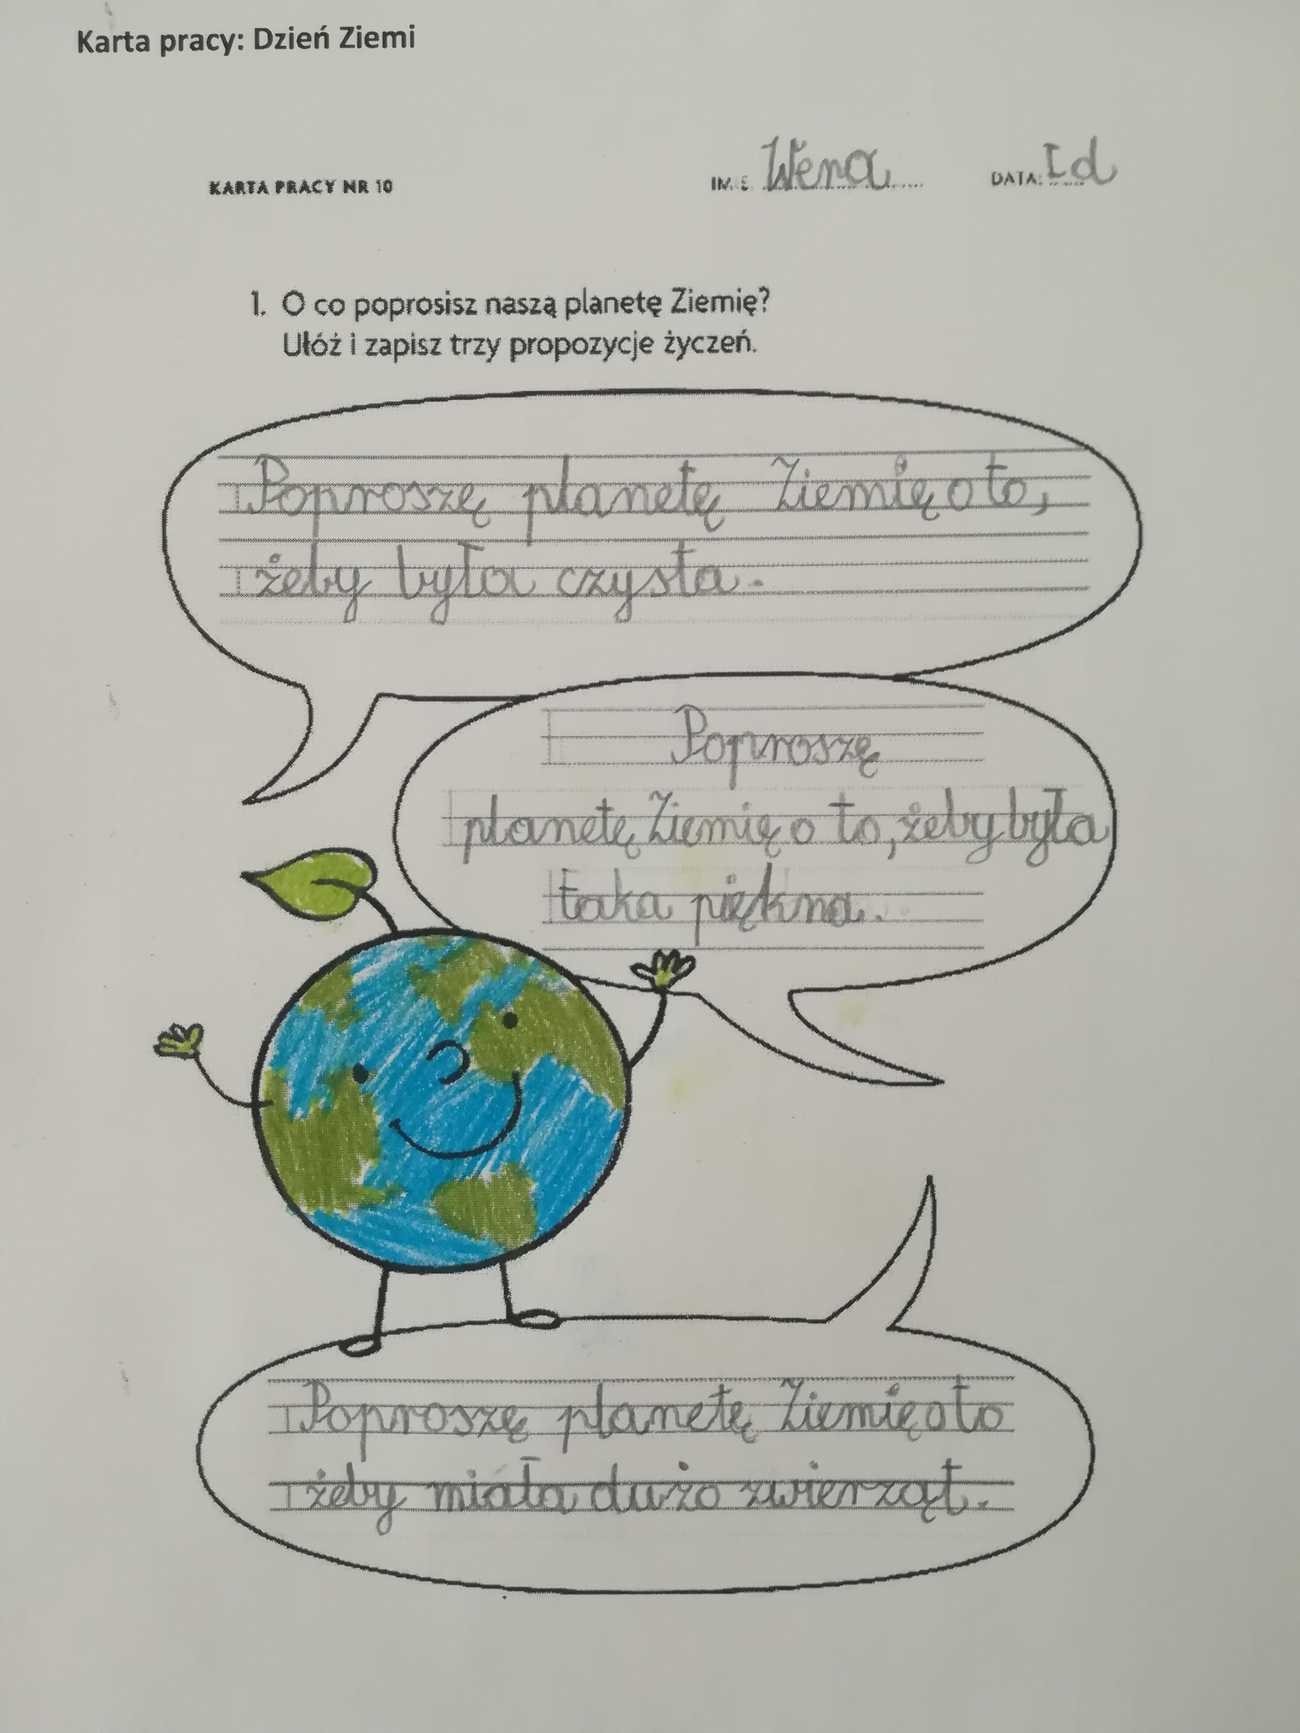 Karta pracy: Dzień Ziemi
KARTA PRACY NR 10 IMIĘ Wena DATA: Id
1. O co poprosisz naszą planetę Ziemię?
Ułóż i zapisz trzy propozycje życzeń.
Poproszę planetę Ziemię o to,
żeby była czysta.
Poproszę
planetę Ziemię o to, żeby była
taka piękna.
Poproszę planetę Ziemię o to
żeby miała dużo zwierząt.